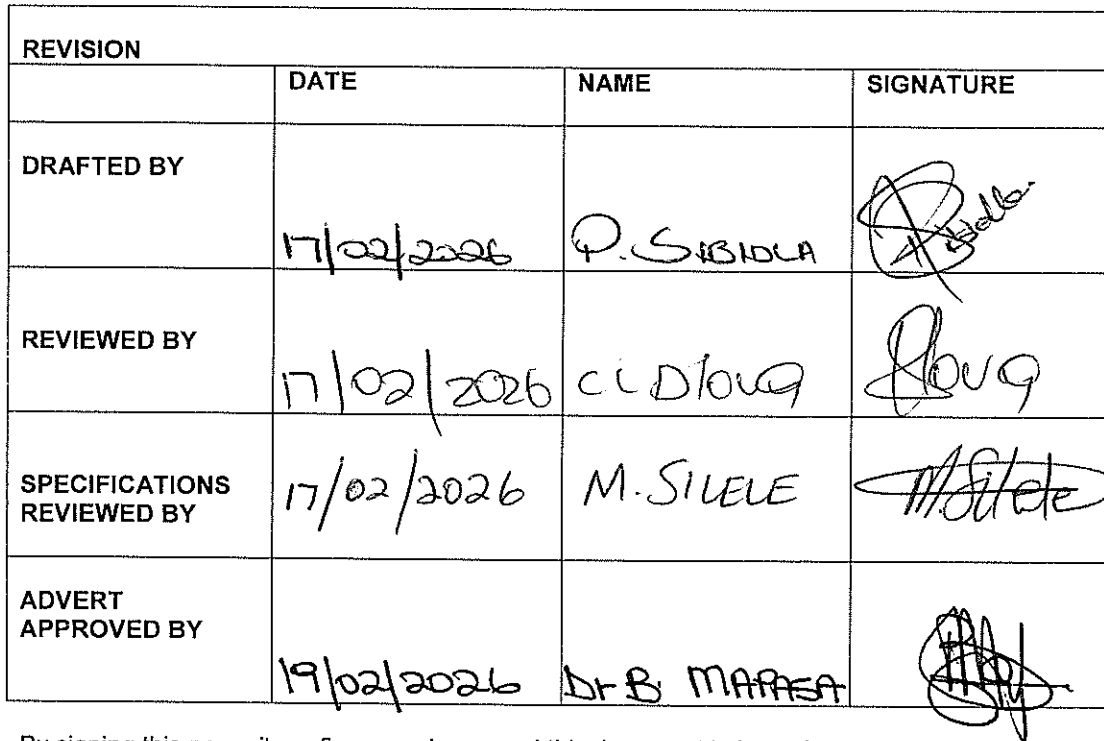 REVISION
DATE NAME SIGNATURE
DRAFTED BY
17/02/2026 P. SIBIDLA
REVIEWED BY
17/02/2026 Dlova
SPECIFICATIONS
REVIEWED BY
17/02/2026 M. SILELE M.Silele
ADVERT
APPROVED BY
19/02/2026 Dr B MAPASA